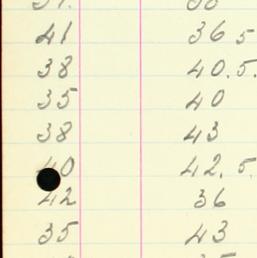 41 36 5
38 40.5.
35 40
38 43
40 42.5.
42 36
35 43